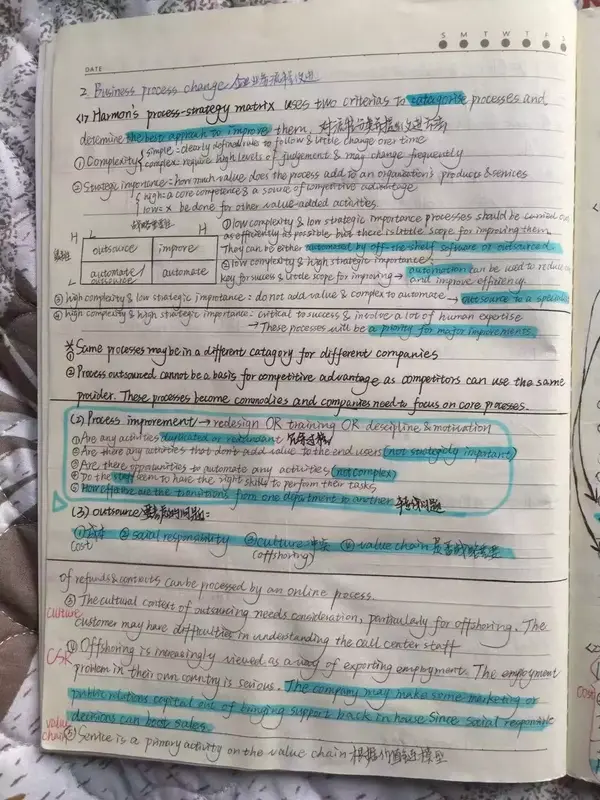 S M T W T F S
DATE
2. Business process change 企业业务流程改进
<1> Harmon's process-strategy matrix uses two criterias to catagorise processes and
determine the best approach to improve them. 对流程分类并提供改进方案
① Complexity { simple = clearly defined rules to follow & little change over time
complex: require high levels of judgement & may change frequently
② Strategic importance = how much value does the process add to an organization's products & services
{ high = a core competence & a source of competitive advantage
low = x be done for other value-added activities.
L 战略重要性 H
H
复杂性
L
outsource improve
automate/outsource automate
① low complexity & low strategic importance processes should be carried out
as efficiently as possible but there is little scope for improving them
They can be either automated by off-the-shelf software or outsourced.
② low complexity & high strategic importance:
key for success & little scope for improving → automation can be used to reduce
and improve efficiency.
③ high complexity & low strategic importance = do not add value & complex to automate → outsource to a specialist
④ high complexity & high strategic importance: critical to success & involve a lot of human expertise
→ These processes will be a priority for major improvements
※
① Same processes may be in a different catagory for different companies
② Process outsourced cannot be a basis for competitive advantage as competitors can use the same
provider. These processes become commodities and companies need to focus on core processes.
(2) Process improvement → redesign OR training OR descipline & motivation
① Are any activities duplicated or redundant
② Are there any activities that don't add value to the end users (not strategicly important)
③ Are there opportunities to automate any activities (not complex)
④ Do the staff seem to have the right skills to perform their tasks
⑤ How effective are the transitions from one department to another
(3) outsource 要考虑的问题:
① 成本 ② social responsibility ③ culture 冲突 ④ value chain 是否战略重要
cost (offshoring)
of refunds & contracts can be processed by an online process.
culture ③ The cultural context of outsourcing needs consideration, particularly for offshoring. The
customer may have difficulties in understanding the call center staff
CSR ④ Offshoring is increasingly viewed as a way of exporting employment. The employment
problem in their own country is serious. The company may make some marketing or
public relations capital out of bringing support back in house since social responsible
decisions can boost sales.
value chain ⑤ Service is a primary activity on the value chain 根据价值链模型